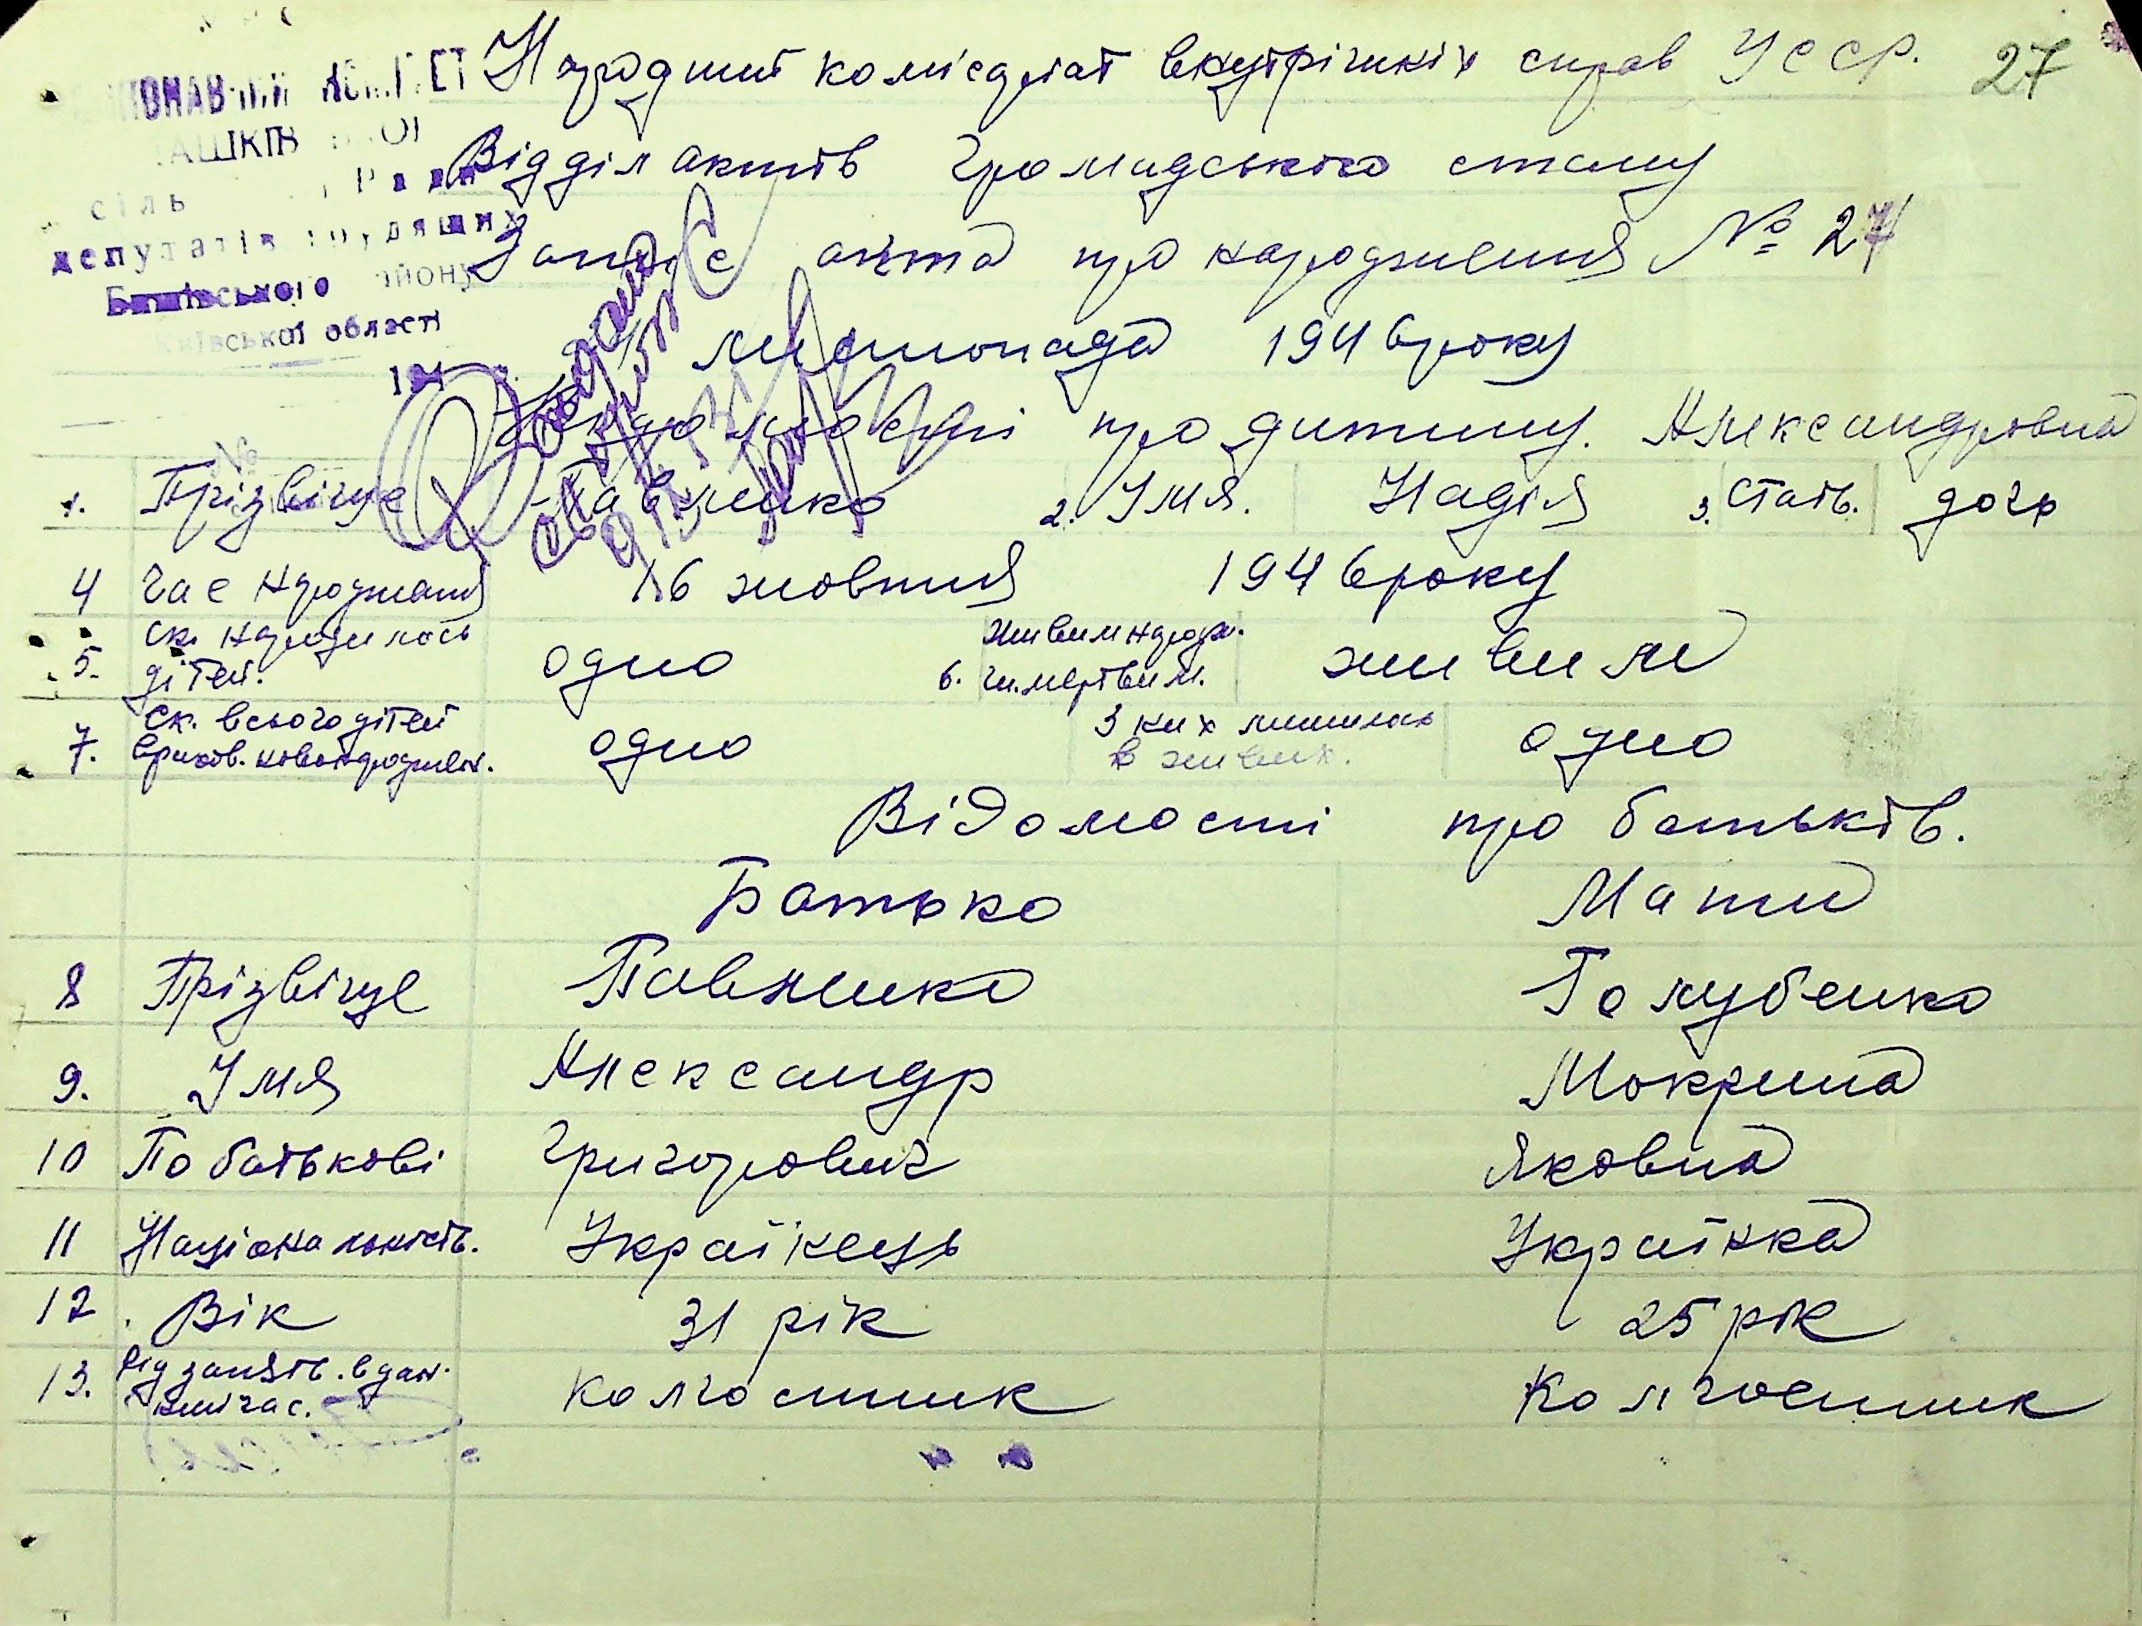 Народний комісаріат внутрішніх справ УССР. 27
АШКІВ
депутатів трудящих
Бишівського району
Київської області
194
Відділ актів громадського стану
Запис акта про народження № 27
листопада 1946 року
Відомості про дитину. Александровна
1. Прізвіще Павленко 2. Імя. Надія 3. Стать. дочь
4 Час народження 16 жовтня 1946 року
5. Ск. народилось дітей. одно 6. Живим народж. чи мертвим. живим
7. Ск. всього дітей врахов. новонароджен. одно З них лишилась в живих. одно
Відомості про батьків.
Батько Мати
8 Прізвіще Павленко Голубенко
9. Імя Александр Мокрина
10 По батькові Григорович Яковна
11 Національність. Українець Українка
12. Вік 31 рік 25 рік
13. Рід занять. в дан. час. колгоспник колгоспник